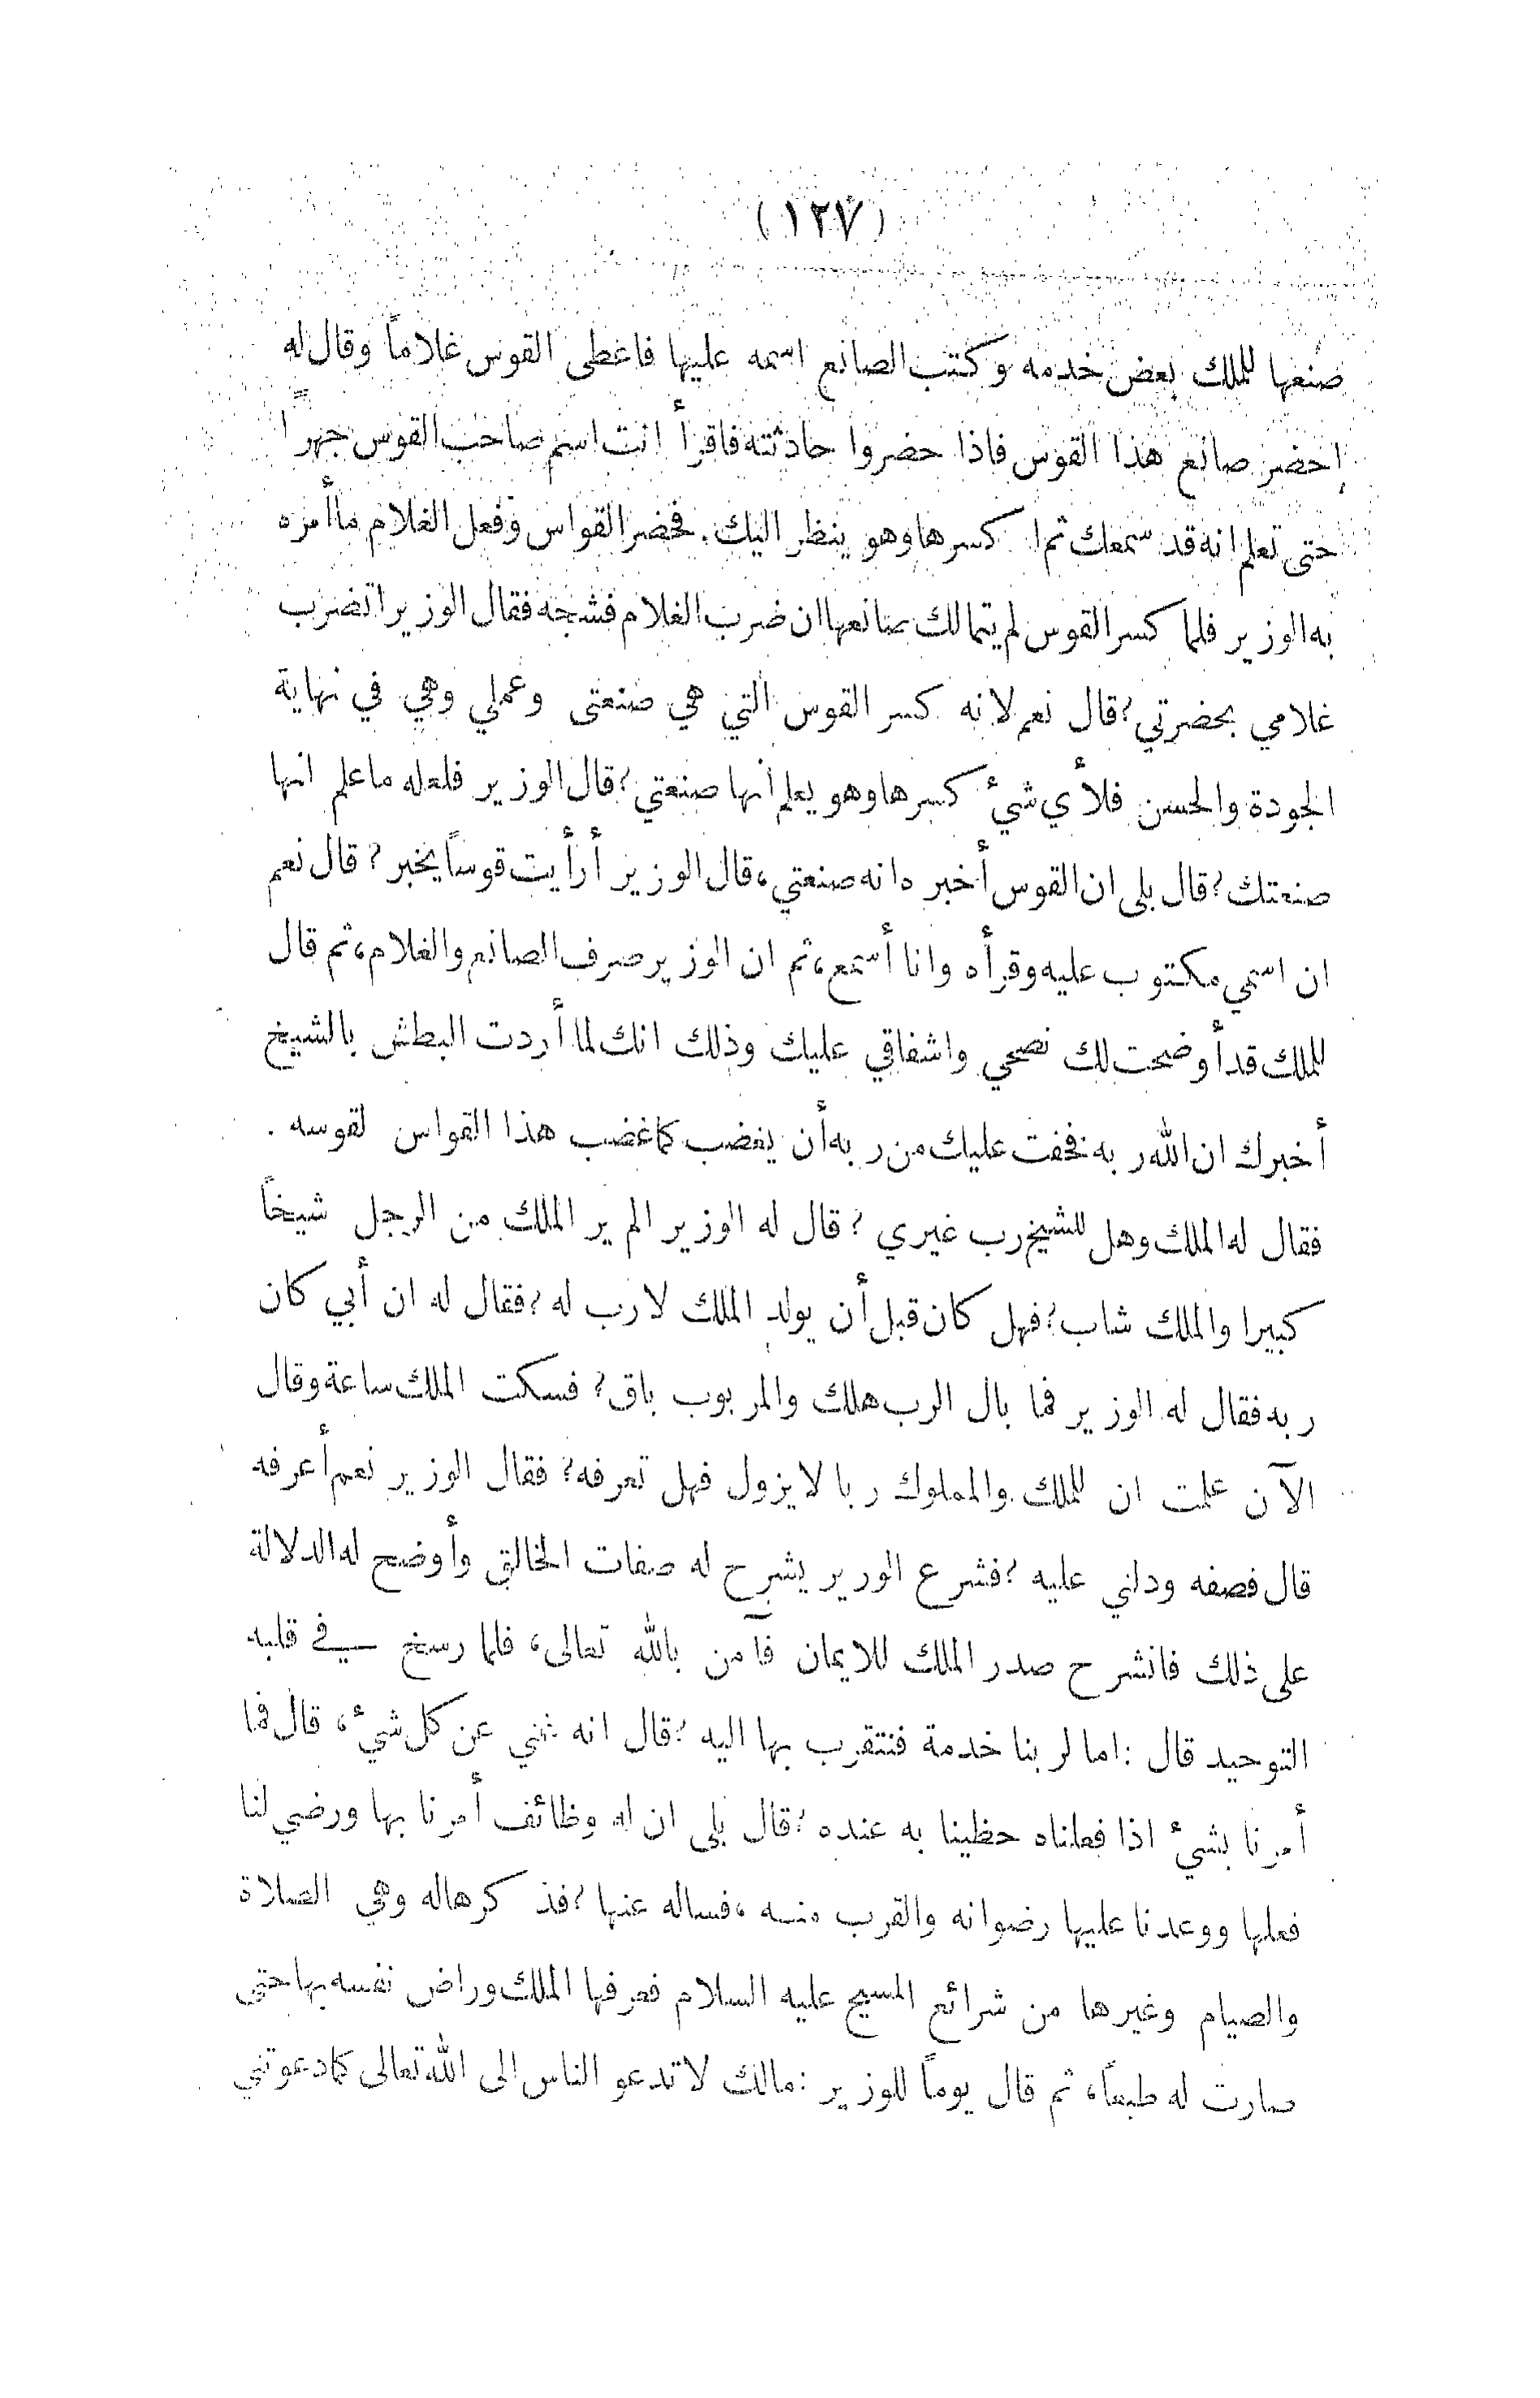 (١٢٧)
صنعها للملك بعض خدمه وكتب الصانع اسمه عليها فاعطى القوس غلاماً وقال له
إحضر صانع هذا القوس فاذا حضروا حادثته فاقرأ انت اسم صاحب القوس جهراً
حتى تعلم انه قد سمعك ثم اكسرها وهو ينظر اليك. فحضر القواس وفعل الغلام ما أمره
به الوزير فلما كسر القوس لم يتمالك صانعها ان ضرب الغلام فشجه فقال الوزير اتضرب
غلامي بحضرتي؟ قال نعم لانه كسر القوس التي هي صنعتى وعملي وهي في نهاية
الجودة والحسن فلأي شيء كسرها وهو يعلم أنها صنعتي؟ قال الوزير فلعله ما علم انها
صنعتك؟ قال بلى ان القوس أخبره انه صنعتي، قال الوزير أرأيت قوساً يخبر؟ قال نعم
ان اسمي مكتوب عليه وقرأه وانا أسمع، ثم ان الوزير صرف الصانع والغلام، ثم قال
للملك قد أوضحت لك نصحي واشفاقي عليك وذلك انك لما أردت البطش بالشيخ
أخبرك ان الله ربه فخفت عليك من ربه أن يغضب كما غضب هذا القواس لقوسه .
فقال له الملك وهل للشيخ رب غيري؟ قال له الوزير الم ير الملك من الرجل شيخاً
كبيرا والملك شاب؟ فهل كان قبل أن يولد الملك لا رب له؟ فقال له ان أبي كان
ربه فقال له الوزير فما بال الرب هلك والمربوب باق؟ فسكت الملك ساعة وقال
الآن علمت ان للملك والمملوك ربا لا يزول فهل تعرفه؟ فقال الوزير نعم أعرفه
قال فصفه ودلني عليه؟ فشرع الوزير يشرح له صفات الخالق وأوضح له الدلالة
على ذلك فانشرح صدر الملك للايمان فآمن بالله تعالى، فلما رسخ في قلبه
التوحيد قال: اما لربنا خدمة فنتقرب بها اليه؟ قال انه غني عن كل شيء، قال فما
أمرنا بشيء اذا فعلناه حظينا به عنده؟ قال بلى ان له وظائف أمرنا بها ورضي لنا
فعلها ووعدنا عليها رضوانه والقرب منه، فساله عنها؟ فذكرها له وهي الصلاة
والصيام وغيرها من شرائع المسيح عليه السلام فعرفها الملك وراض نفسه بها حتى
صارت له طبعاً، ثم قال يوماً للوزير: مالك لا تدعو الناس الى الله تعالى كما دعوتني